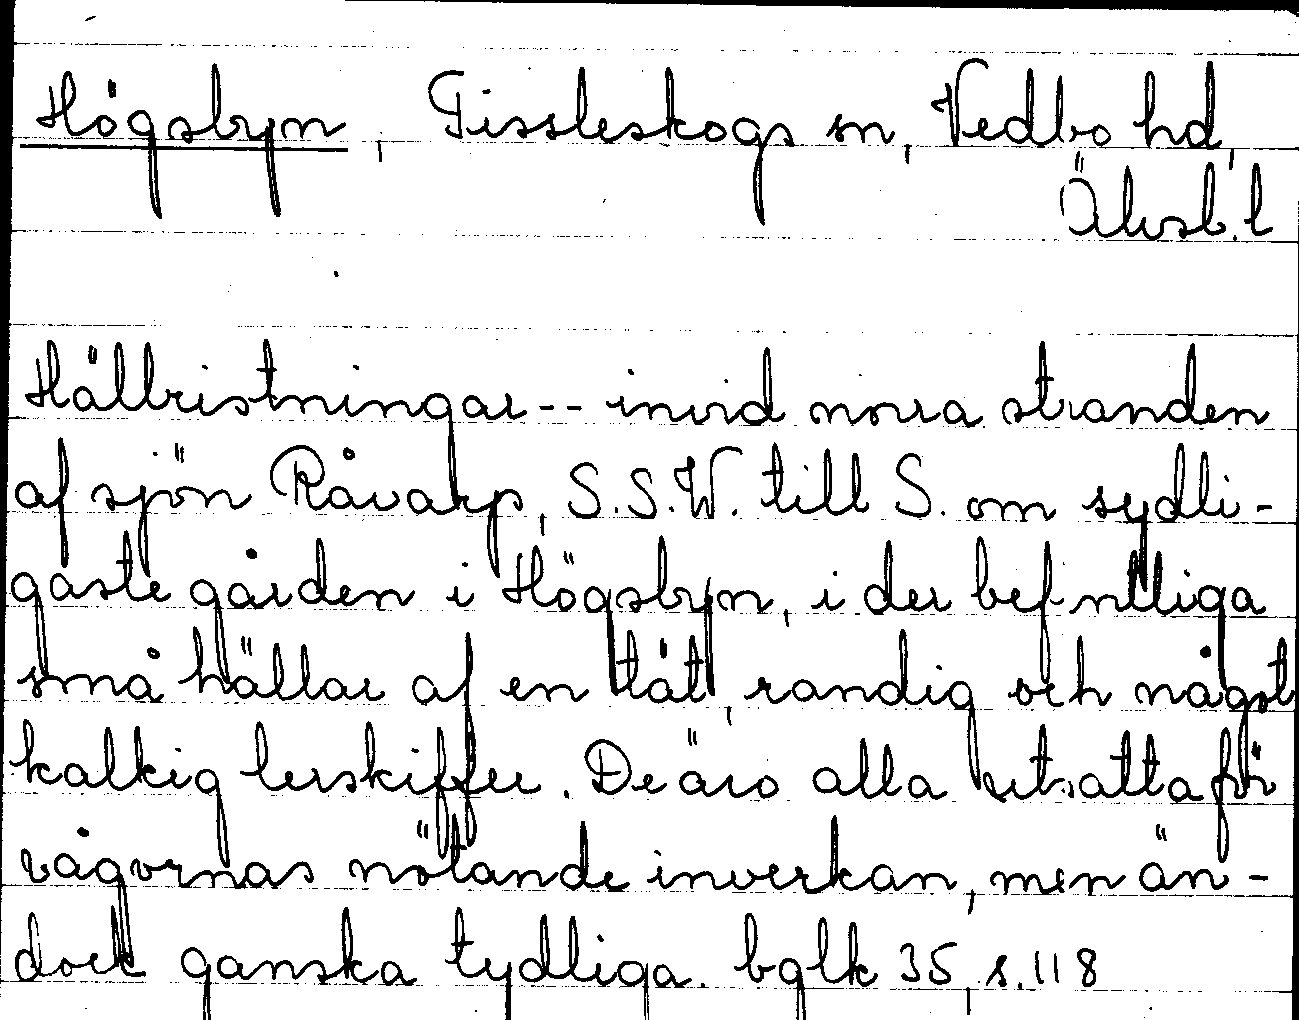 Högsbyn, Tissleskogs sn, Vedbo hd,
Älvsb. l
Hällristningar -- invid norra stranden
af sjön Råvarp, S.S.W. till S. om sydli-
gaste gården i Högsbyn, i der befintliga
små hällar af en tät, randig och något
kalkig lerskiffer. De äro alla utsatta för
vågornas nötande inverkan, men än-
dock ganska tydliga. bglk 35, s. 118